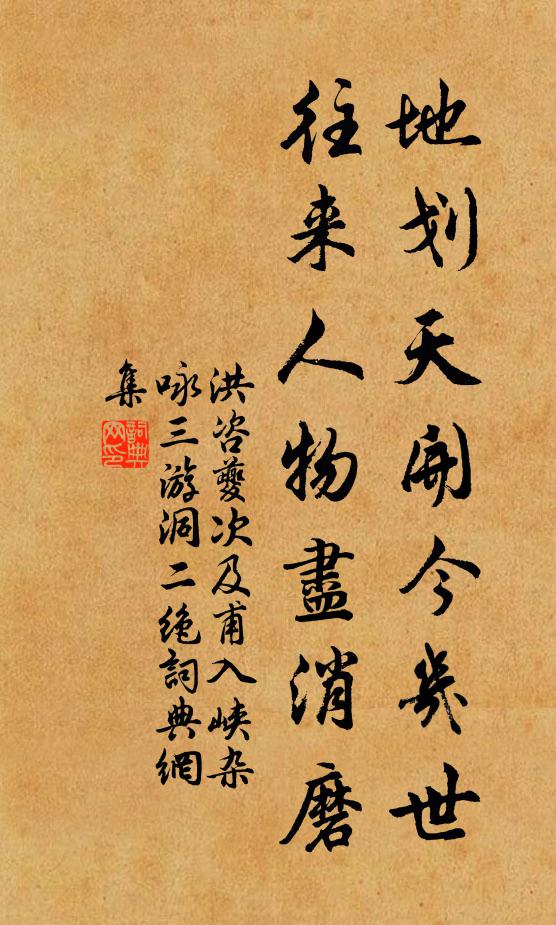 地划天開今幾世
往来人物盡消磨
洪咨夔次及甫入峡杂
咏三游洞二绝詞典網
集
詞典
网印